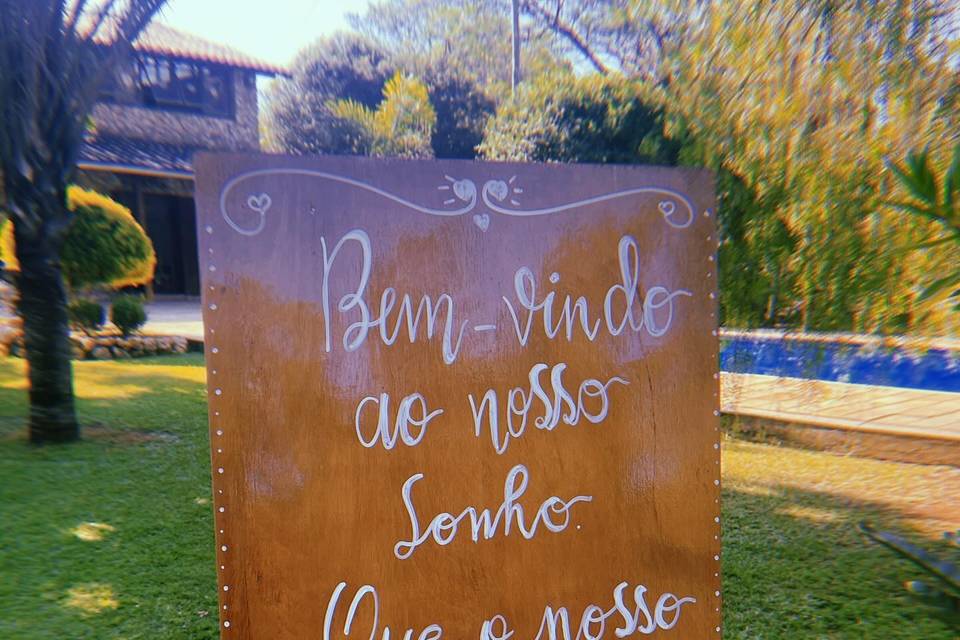 Bem-vindo
ao nosso
Sonho.
Que o nosso